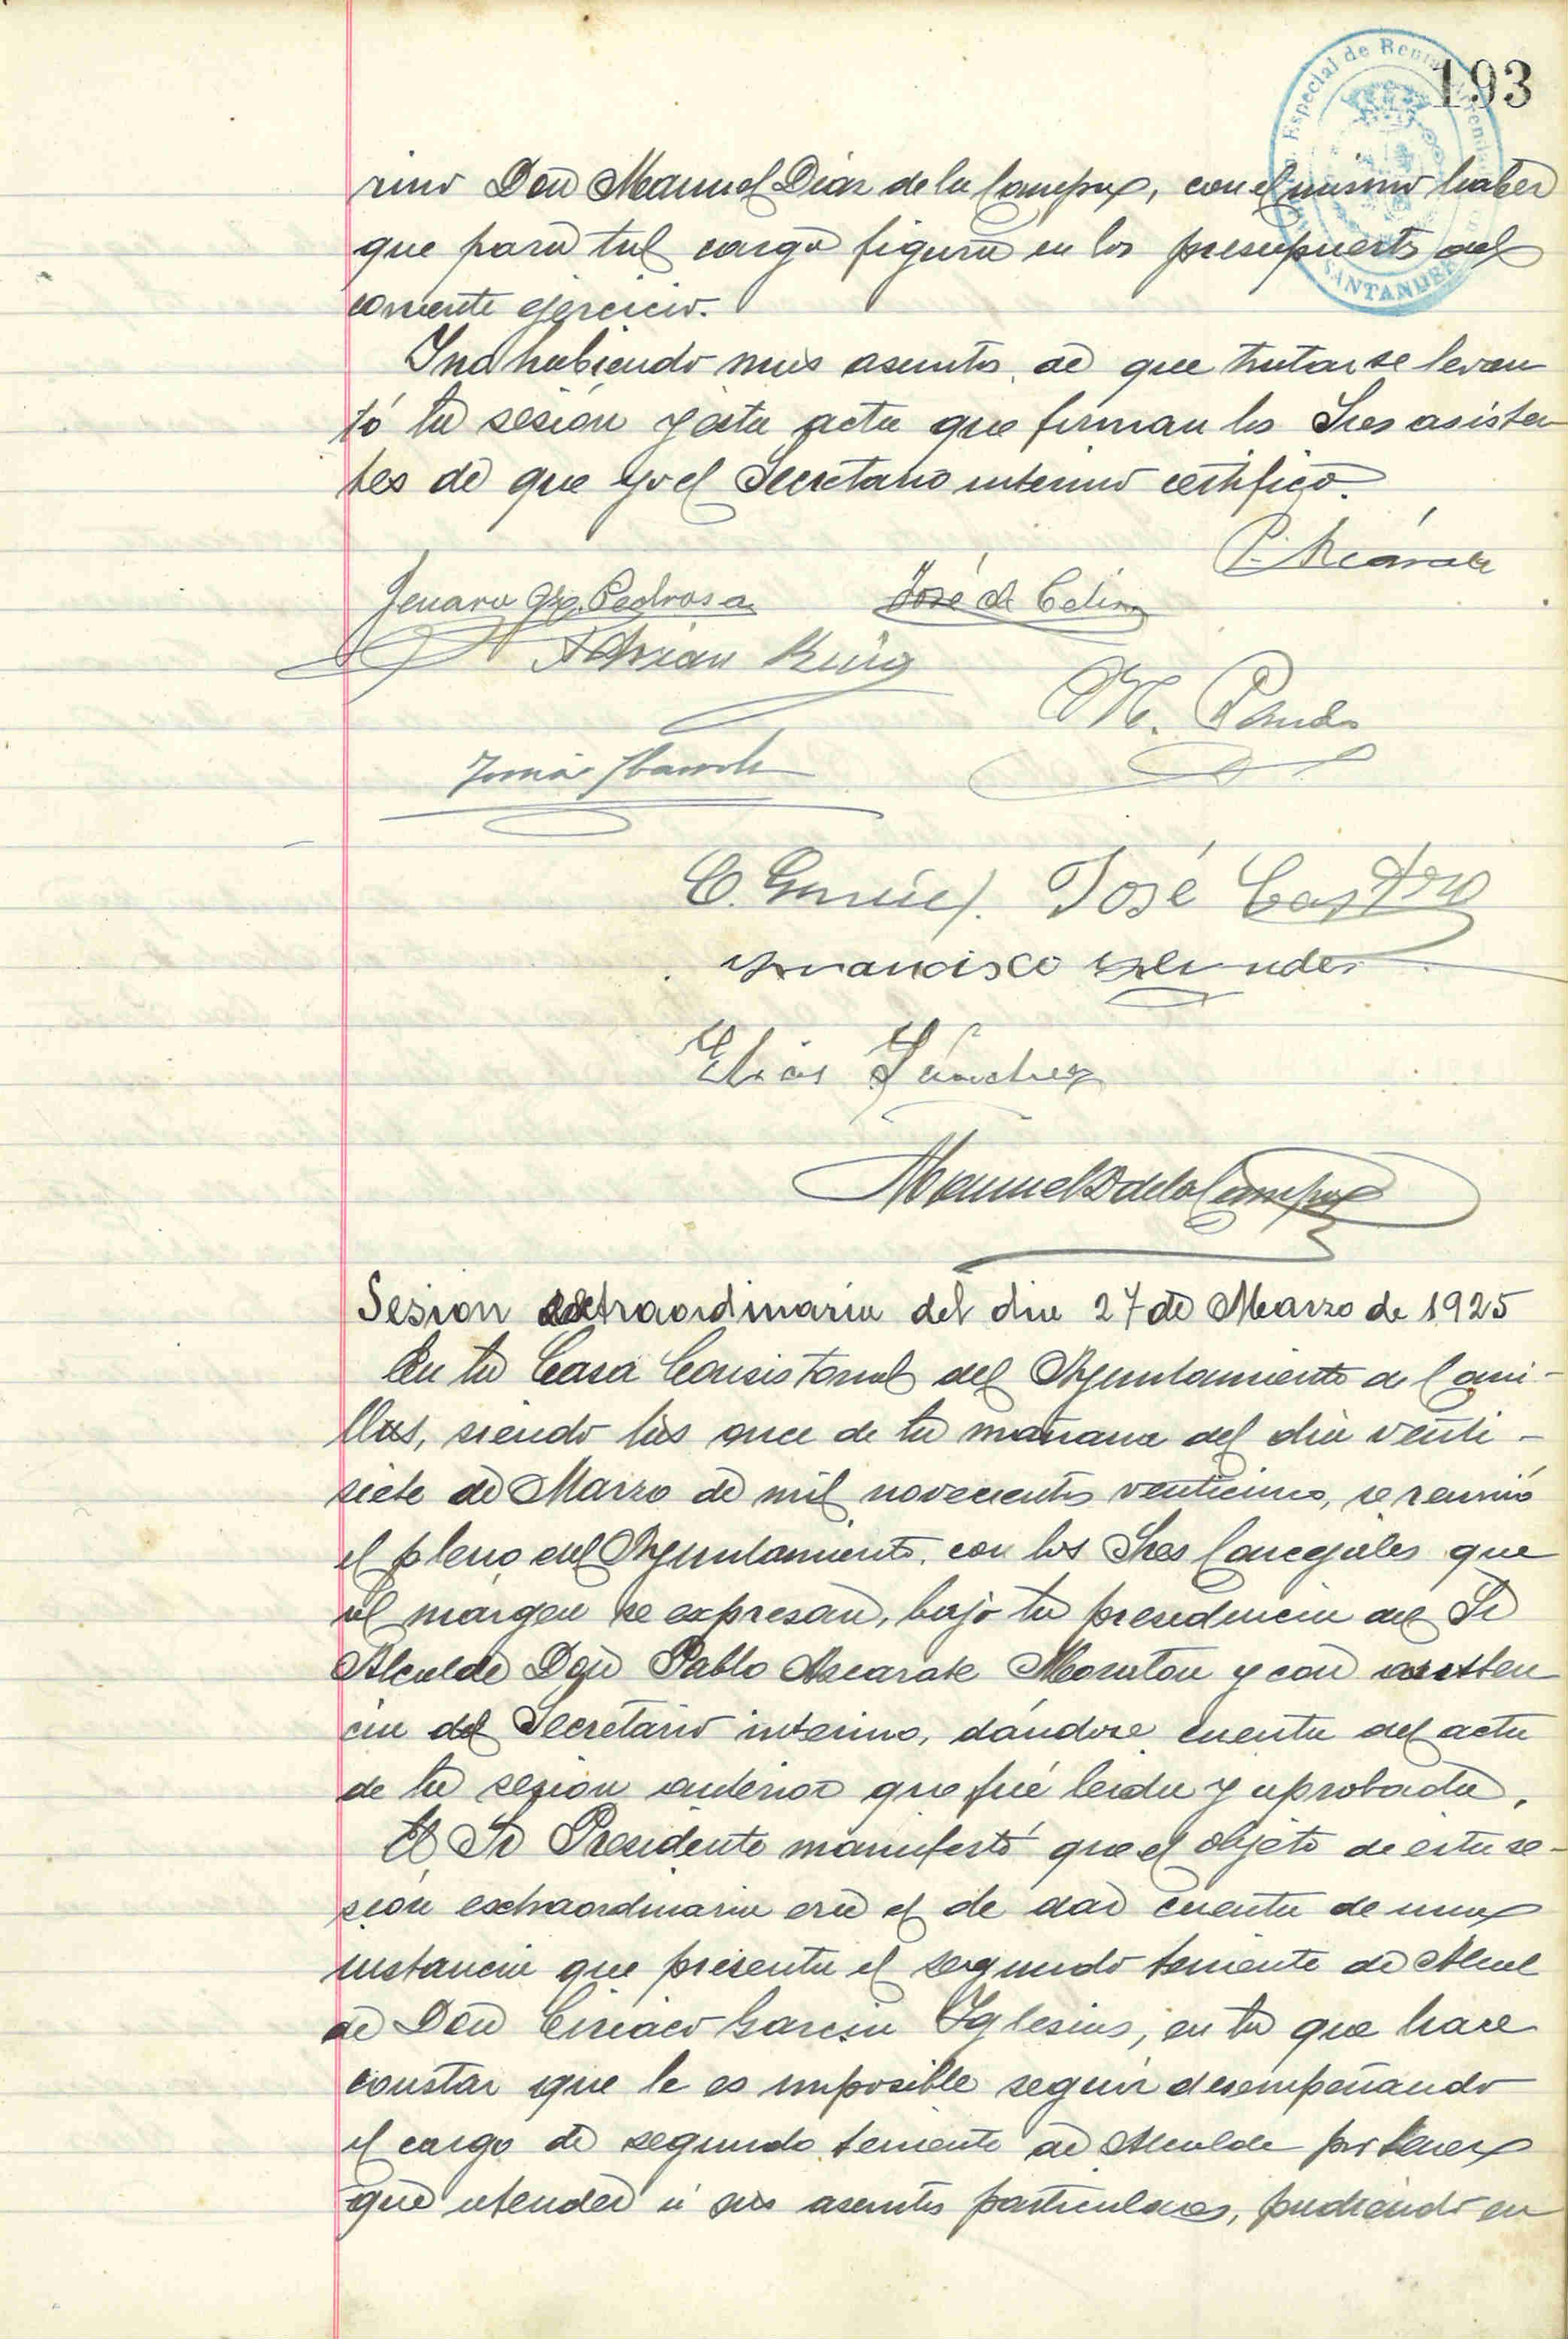 193
Especial de Rentas
SANTANDER
rino Don Manuel Diaz de la Campa, con el mismo haber
que para tal cargo figura en los presupuestos del
corriente ejercicio.
Y no habiendo más asuntos de que tratar se levan
tó la sesión y esta acta que firman los Sres asisten
tes de que yo el Secretario interino certifico.
P. Azcárate
Jenaro Gz. Pedrosa José de Celis
Adrián Ruiz
M. Pando
Tomás
C. García José Castro
Francisco
Elías Sánchez
Manuel D de la Campa
Sesion extraordinaria del dia 27 de Marzo de 1925
En la Casa Consistorial del Ayuntamiento de Comi-
llas, siendo las once de la mañana del dia venti-
siete de Marzo de mil novecientos venticinco, se reunió
el pleno del Ayuntamiento, con los Sres Concejales que
al márgen se expresan, bajo la presidencia del Sr
Alcalde Don Pablo Azcarate y con asisten
cia del Secretario interino, dándose cuenta del acta
de la sesion anterior que fué leida y aprobada.
El Sr Presidente manifestó que el objeto de esta se-
sion extraordinaria era el de dar cuenta de una
instancia que presenta el segundo teniente de Alcal
de Don Ciriaco Garcia Iglesias, en la que hace
constar que le es imposible seguir desempeñando
el cargo de segundo teniente de Alcalde por tener
que atender á sus asuntos particulares, pudiendo en